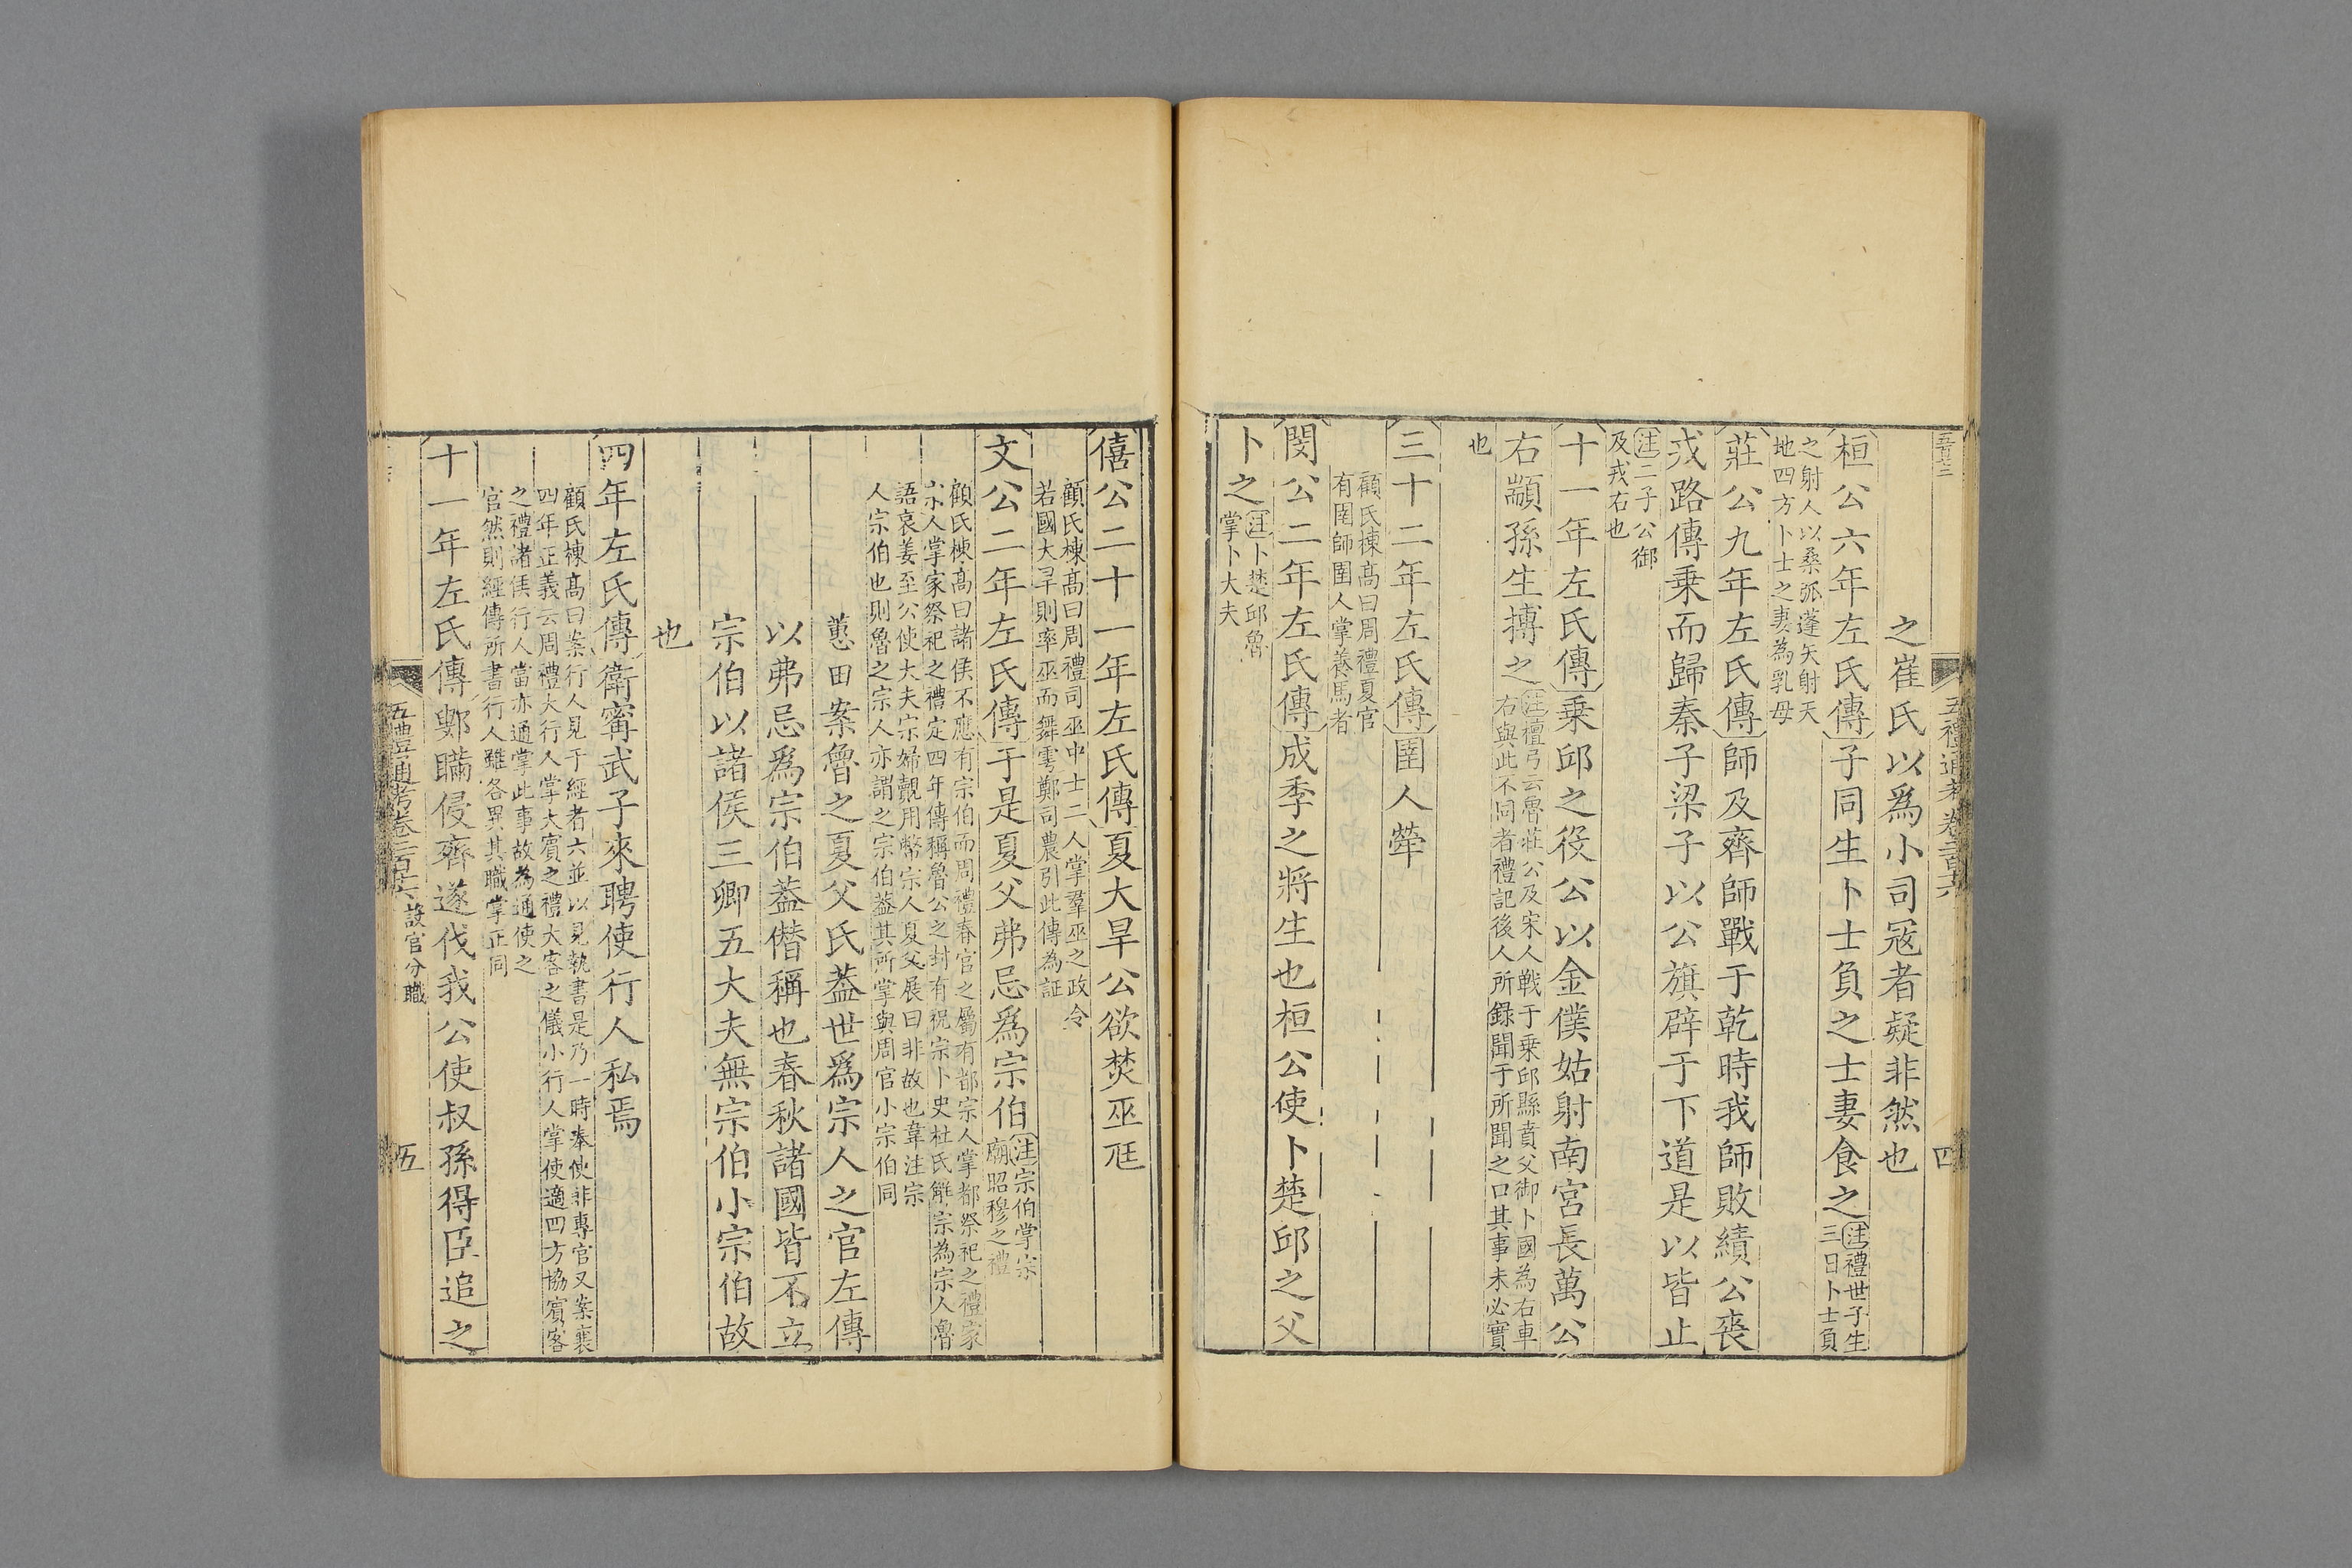 五禮通考卷二百十六
四
之崔氏以爲小司寇者疑非然也
桓公六年左氏傳子同生卜士負之士妻食之注禮世子生三日卜士負
之射人以桑弧蓬矢射天地四方卜士之妻為乳母
莊公九年左氏傳師及齊師戰于乾時我師敗績公喪
戎路傳乗而歸秦子梁子以公旗辟于下道是以皆止
注二子公御及戎右也
十一年左氏傳乗邱之役公以金僕姑射南宮長萬公
右顓孫生搏之注檀弓云魯莊公及宋人戰于乗邱縣賁父御卜國為右車右與此不同者禮記後人所錄聞于所聞之口其事未必實
也
三十二年左氏傳圉人犖
顧氏棟高曰周禮夏官有圉師圉人掌養馬者
閔公二年左氏傳成季之將生也桓公使卜楚邱之父
卜之注卜楚邱魯掌卜大夫
僖公二十一年左氏傳夏大旱公欲焚巫尫
顧氏棟高曰周禮司巫中士二人掌羣巫之政令若國大旱則率巫而舞雩鄭司農引此傳為証
文公二年左氏傳于是夏父弗忌爲宗伯注宗伯掌宗廟昭穆之禮
顧氏棟高曰諸侯不應有宗伯而周禮春官之屬有都宗人掌都祭祀之禮家宗人掌家祭祀之禮定四年傳稱魯公之封有祝宗卜史杜氏解宗為宗人魯
語哀姜至公使大夫宗婦覿用幣宗人夏父展曰非故也韋注宗人宗伯也則魯之宗人亦謂之宗伯蓋其所掌與周官小宗伯同
蕙田案魯之夏父氏蓋世爲宗人之官左傳
以弗忌爲宗伯蓋僭稱也春秋諸國皆不立
宗伯以諸侯三卿五大夫無宗伯小宗伯故
也
四年左氏傳衛甯武子來聘使行人私焉
顧氏棟高曰案行人見于經者六並以見執書是乃一時奉使非專官又案襄四年正義云周禮大行人掌大賓之禮大客之儀小行人掌使適四方協賓客
之禮諸侯行人當亦通掌此事故為通使之官然則經傳所書行人雖各異其職掌正同
十一年左氏傳鄋瞞侵齊遂伐我公使叔孫得臣追之
五禮通考卷二百十六 設官分職
五